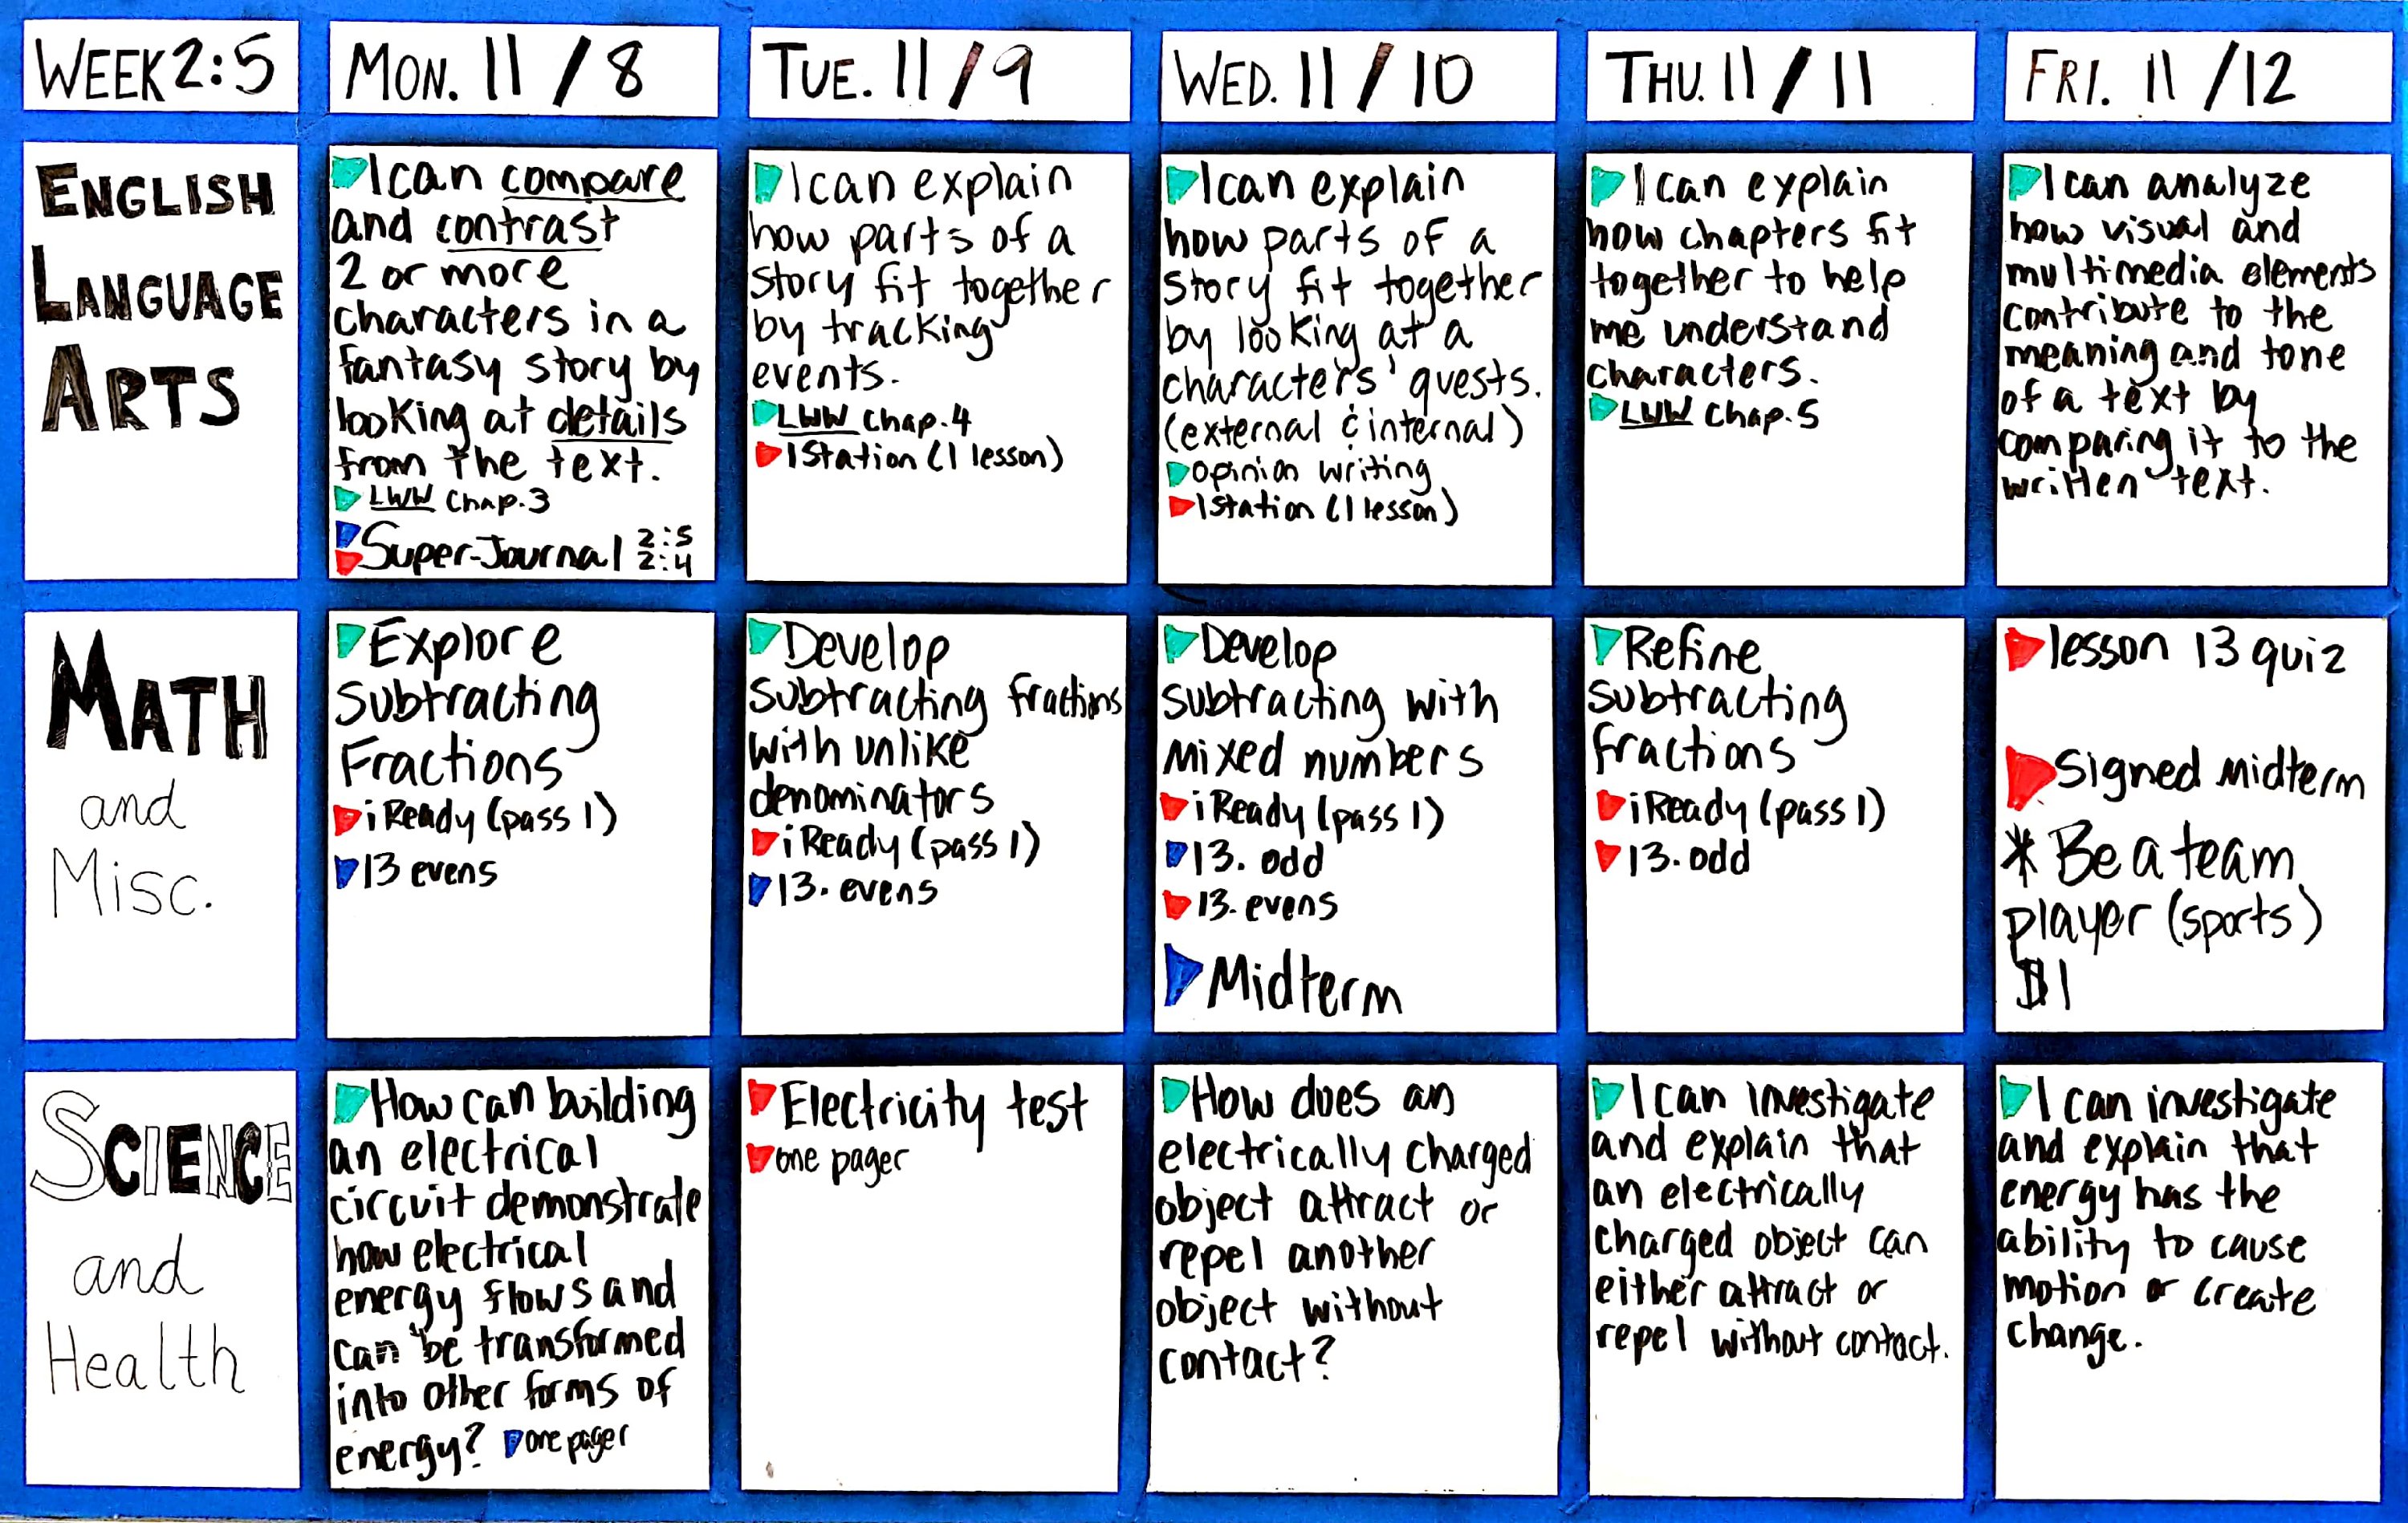 WEEK 2:5
MON. 11/8
TUE. 11/9
WED. 11/10
THU. 11/11
FRI. 11/12
ENGLISH
LANGUAGE
ARTS
I can compare
and contrast
2 or more
characters in a
fantasy story by
looking at details
from the text.
LWW Chap. 3
Super-Journal 2:5
2:4
I can explain
how parts of a
story fit together
by tracking
events.
LWW Chap. 4
IStation (1 lesson)
I can explain
how parts of a
story fit together
by looking at a
characters' quests.
(external & internal)
opinion writing
IStation (1 lesson)
I can explain
how chapters fit
together to help
me understand
characters.
LWW Chap. 5
I can analyze
how visual and
multimedia elements
contribute to the
meaning and tone
of a text by
comparing it to the
written text.
MATH
and
Misc.
Explore
Subtracting
Fractions
iReady (pass 1)
13 evens
Develop
subtracting fractions
with unlike
denominators
iReady (pass 1)
13. evens
Develop
subtracting with
mixed numbers
iReady (pass 1)
13. odd
13. evens
Midterm
Refine
subtracting
fractions
iReady (pass 1)
13. odd
lesson 13 quiz
Signed Midterm
* Be a team
player (sports)
$1
SCIENCE
and
Health
How can building
an electrical
circuit demonstrate
how electrical
energy flows and
can be transformed
into other forms of
energy? one pager
Electricity test
one pager
How does an
electrically charged
object attract or
repel another
object without
contact?
I can investigate
and explain that
an electrically
charged object can
either attract or
repel without contact.
I can investigate
and explain that
energy has the
ability to cause
motion or create
change.